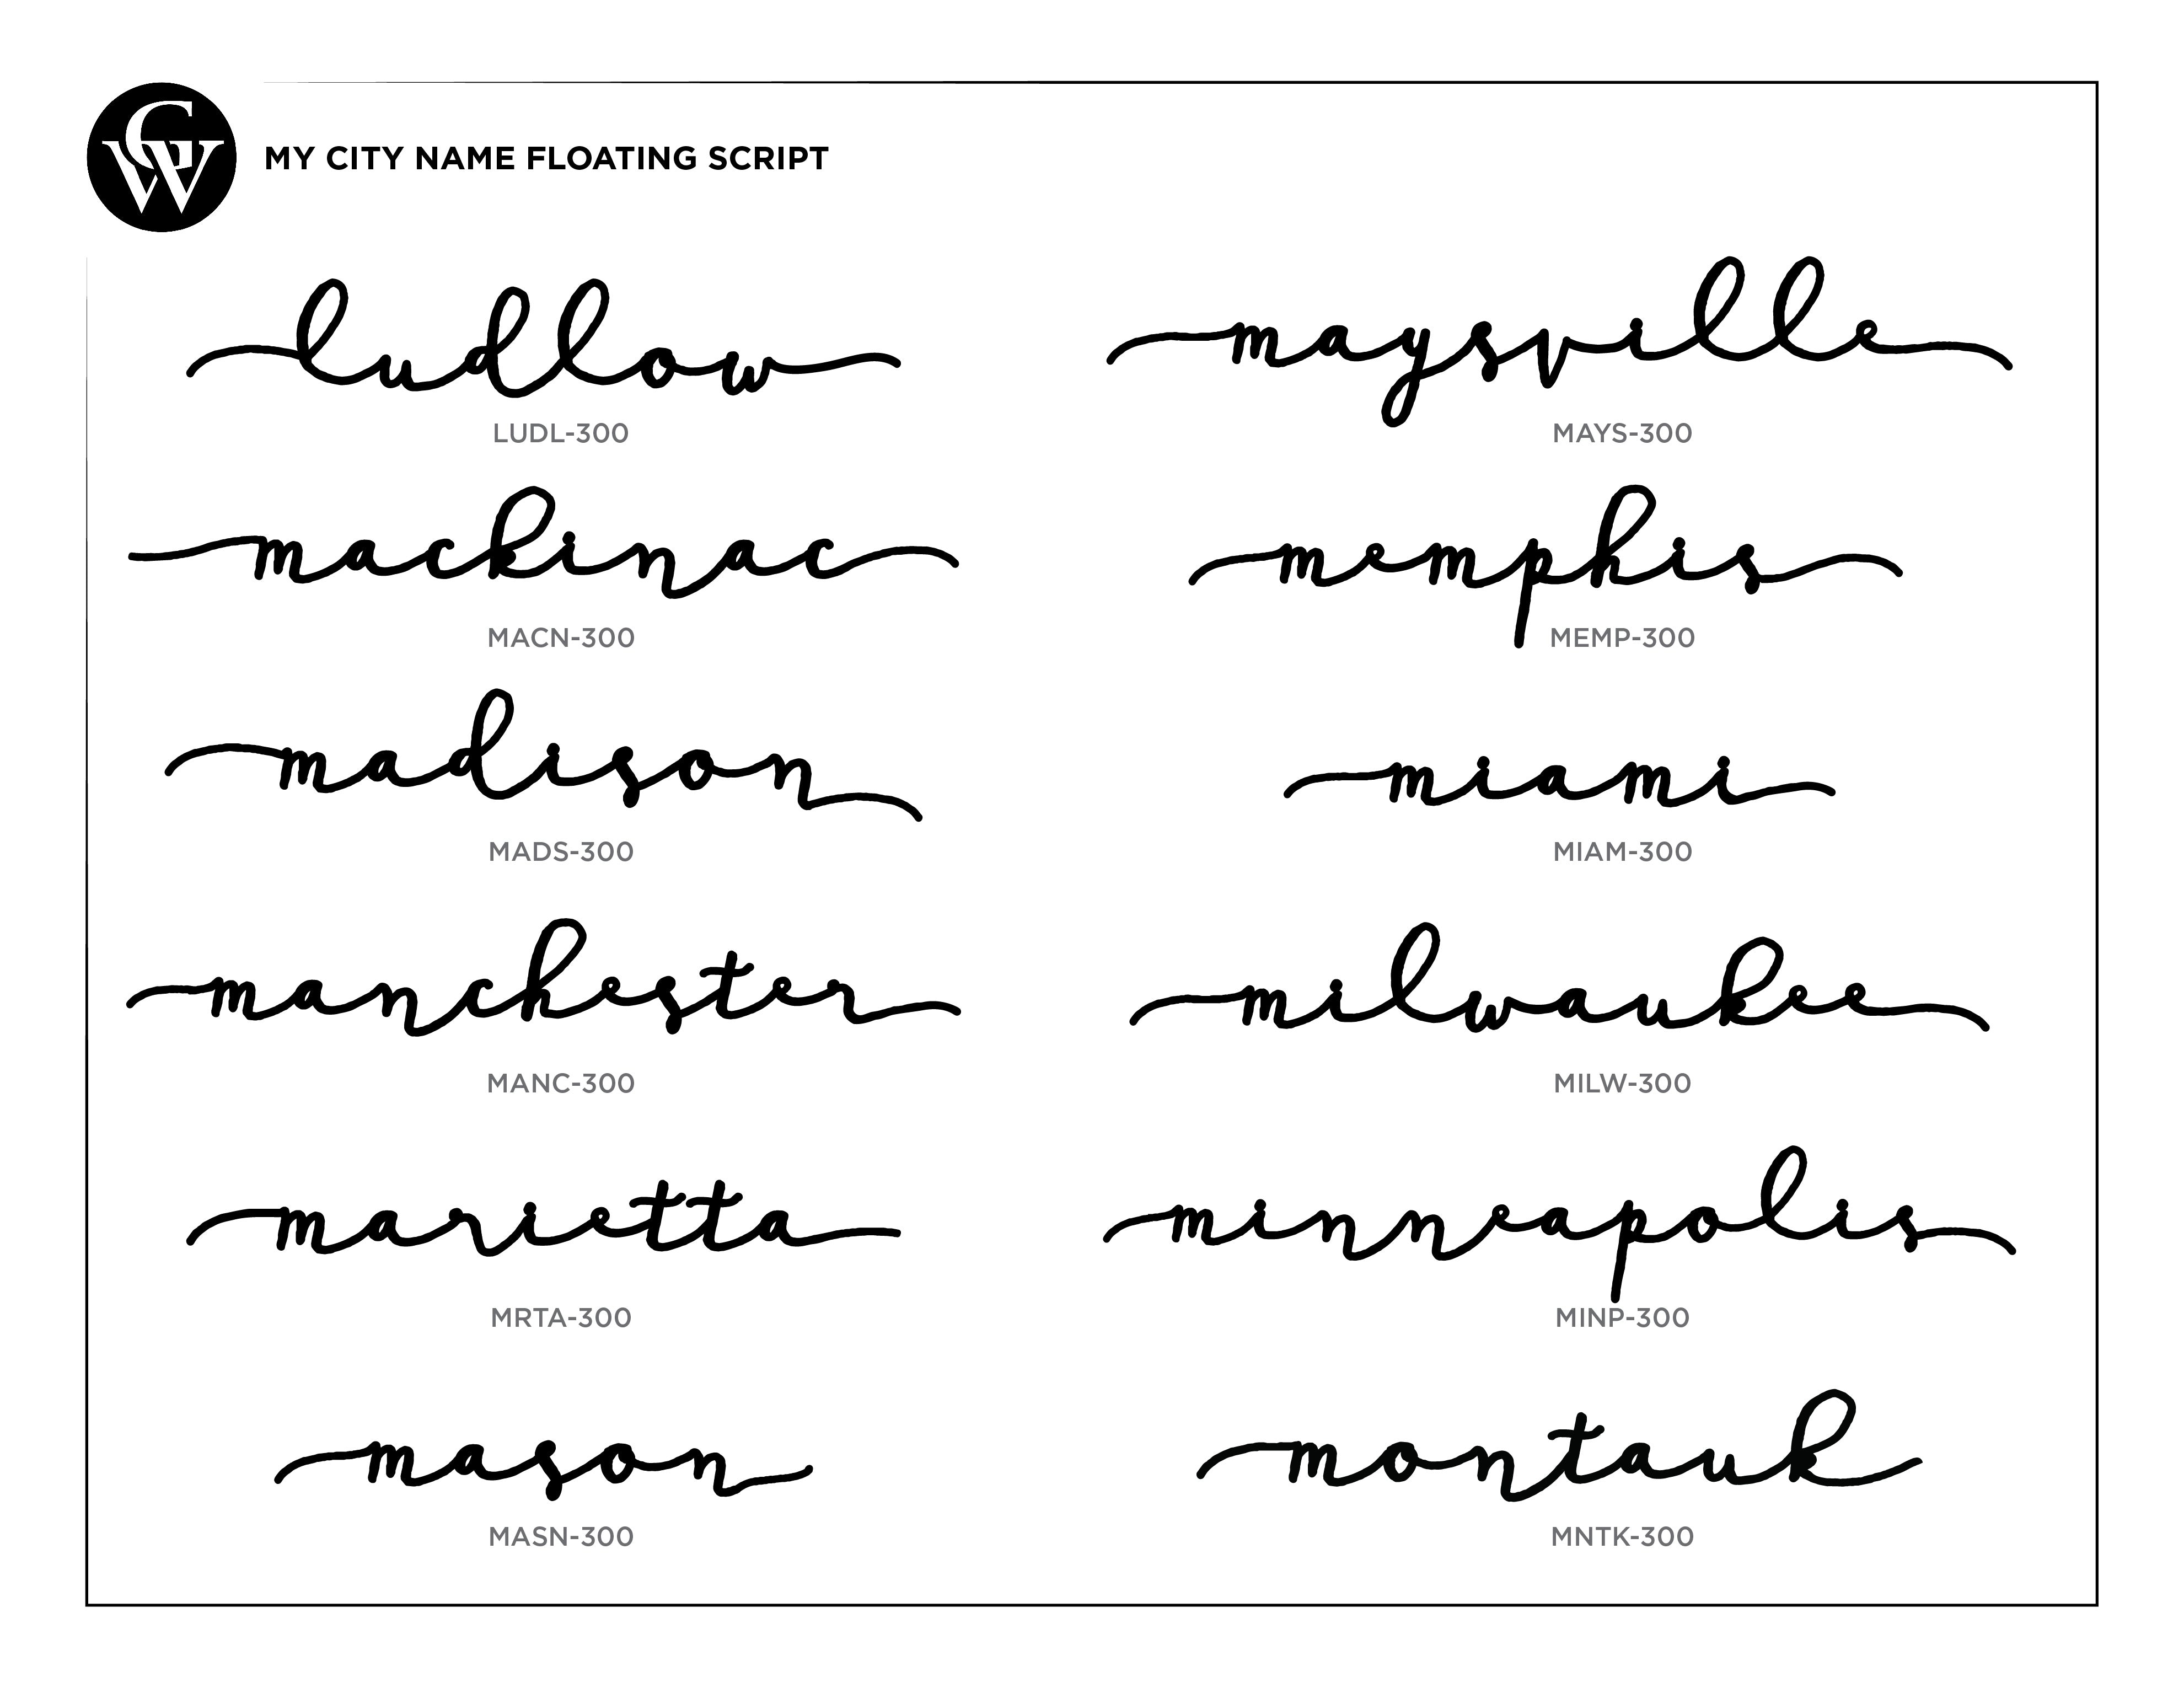 CW
MY CITY NAME FLOATING SCRIPT
ludlow
LUDL-300
mackinac
MACN-300
madison
MADS-300
manchester
MANC-300
marietta
MRTA-300
mason
MASN-300
maysville
MAYS-300
memphis
MEMP-300
miami
MIAM-300
milwaukee
MILW-300
minneapolis
MINP-300
montauk
MNTK-300